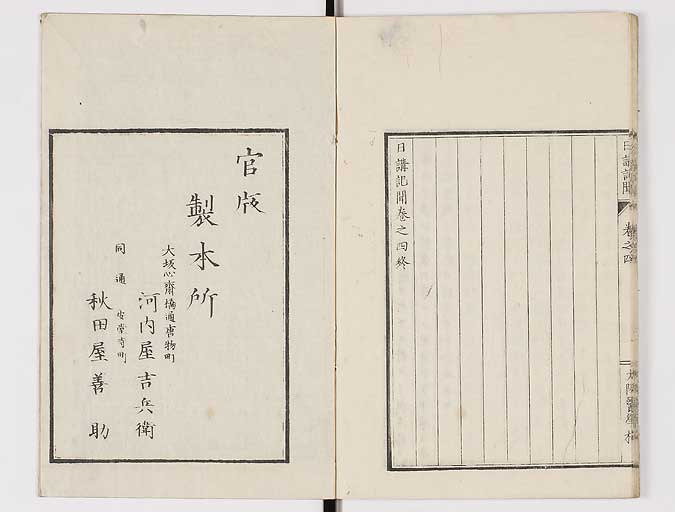 日講記聞
卷之四
大阪醫學校
日講記聞卷之四終
官版
製本所
大坂心齋橋通唐物町
河内屋吉兵衛
同通安堂寺町
秋田屋善助